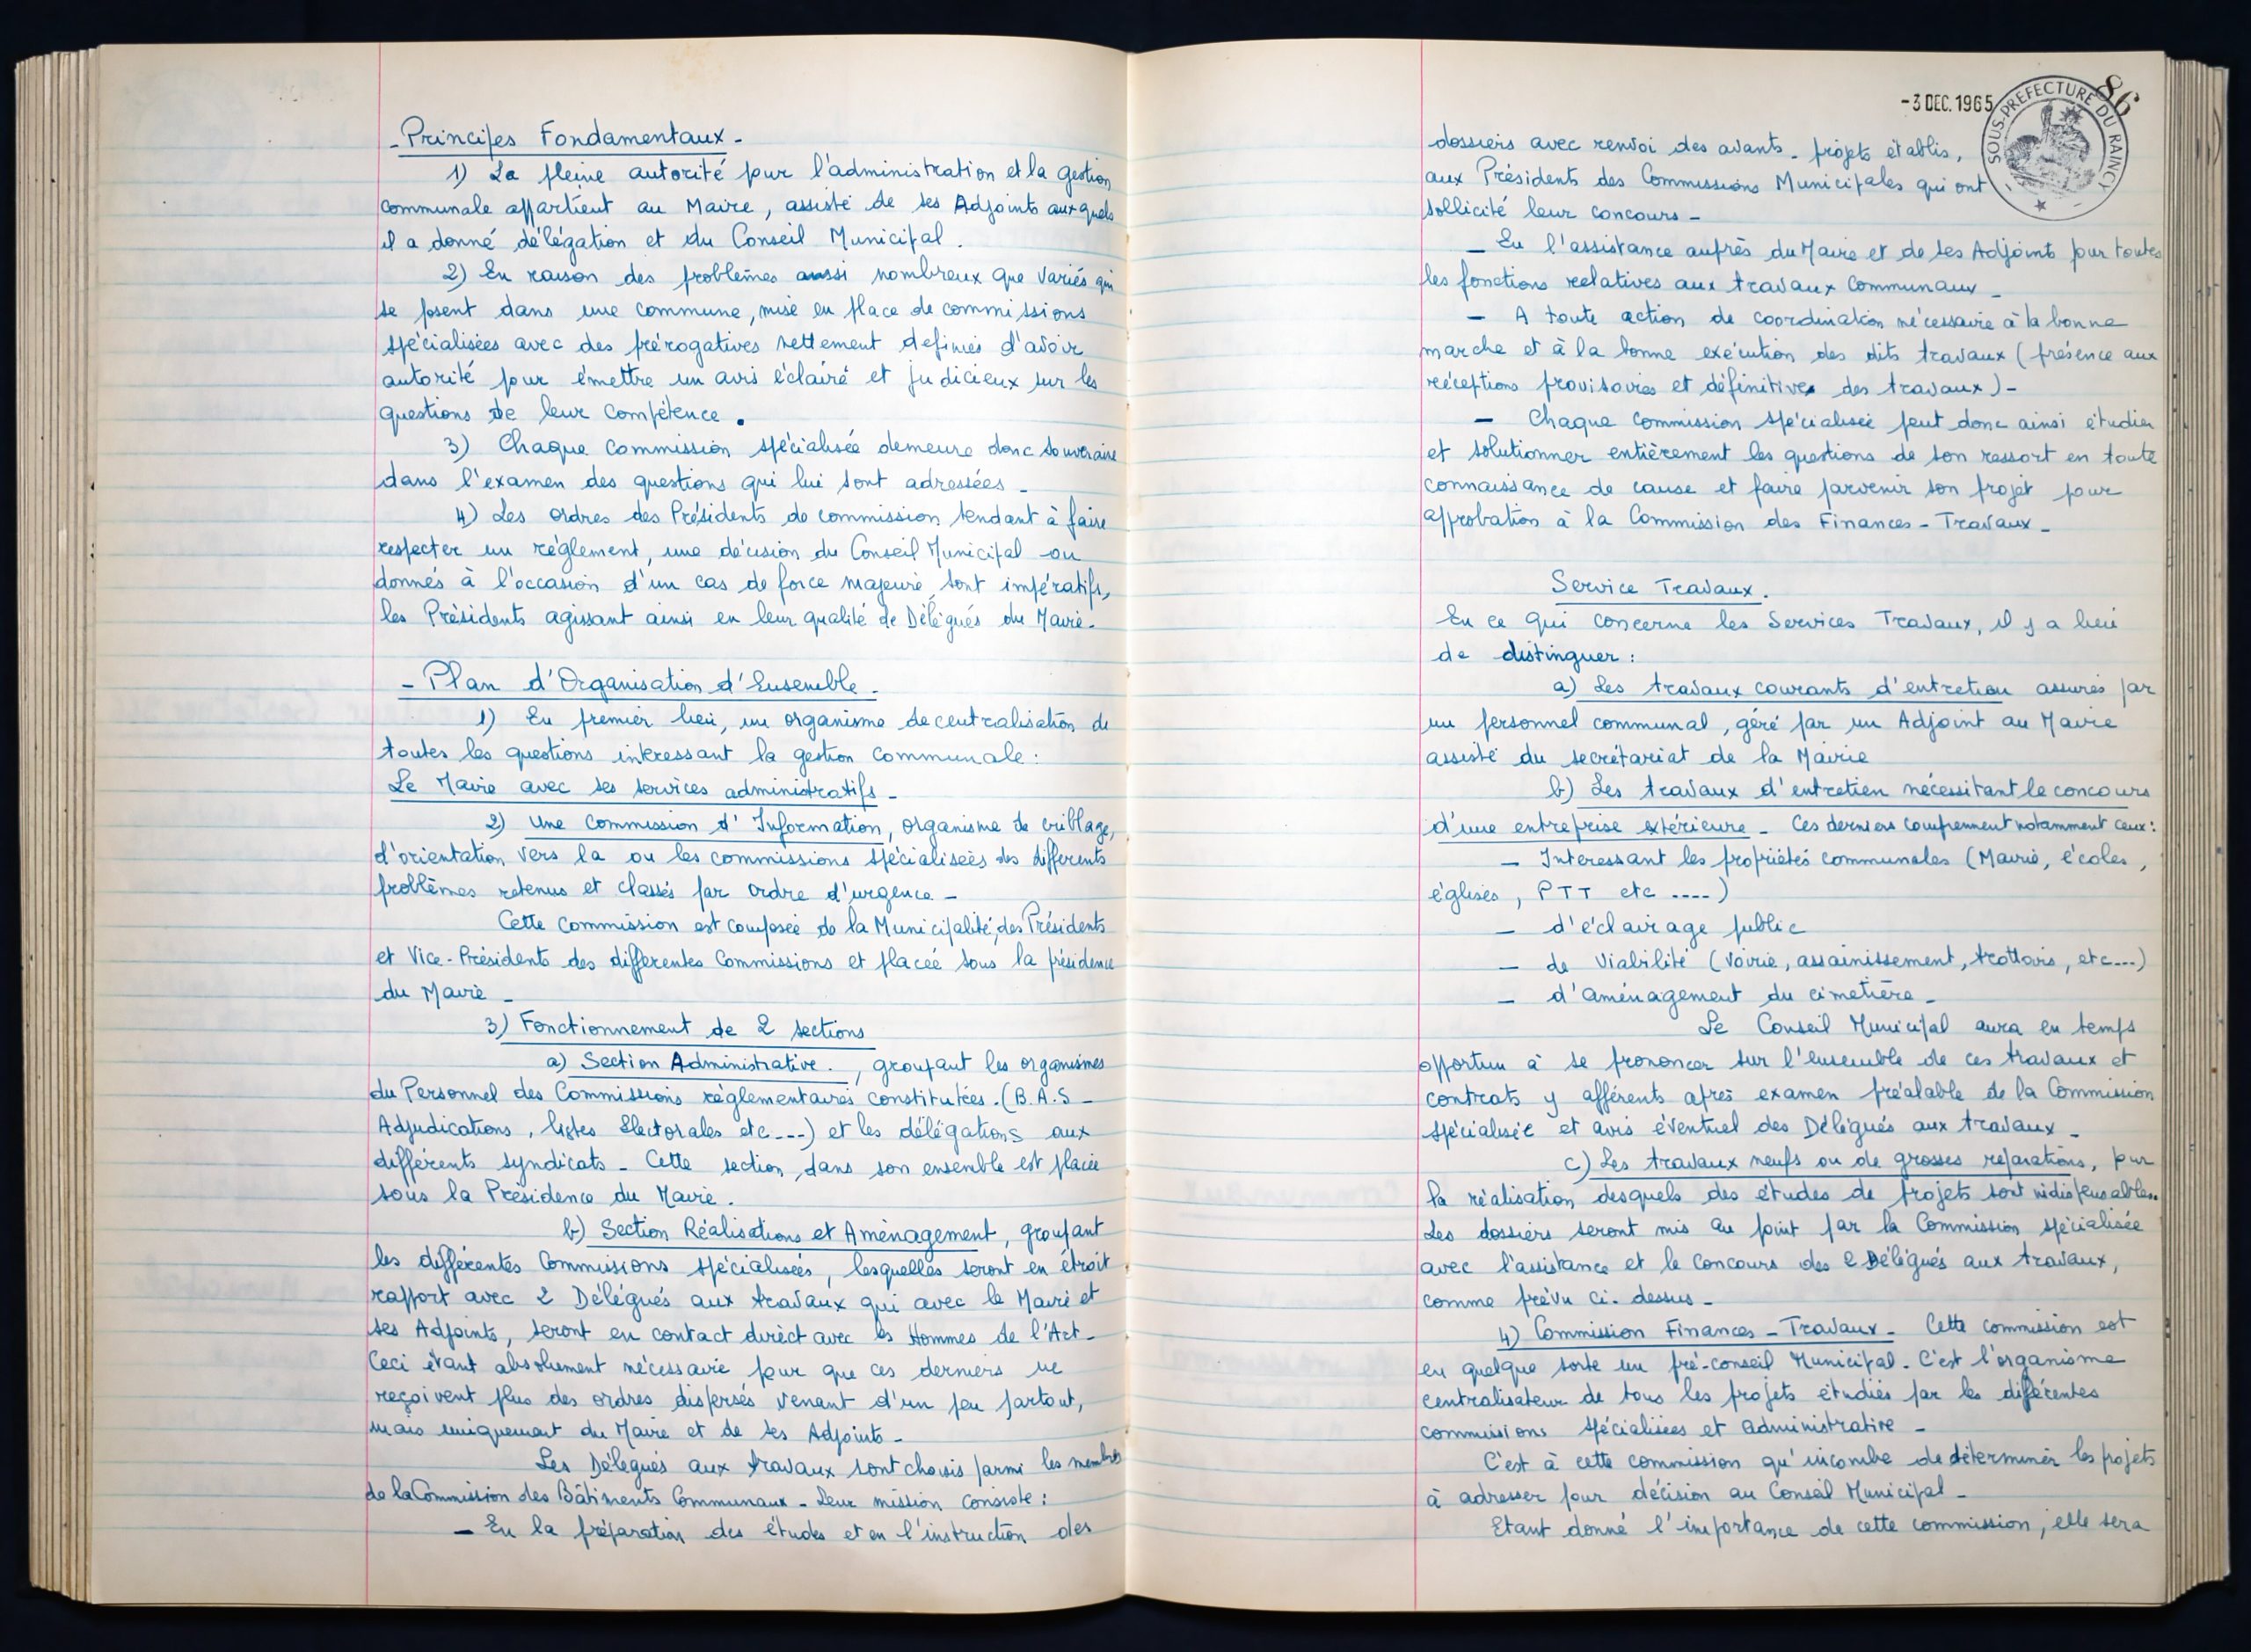 - Principes Fondamentaux -
1) La pleine autorité pour l'administration et la gestion
communale appartient au Maire, assisté de ses Adjoints auxquels
il a donné délégation et du Conseil Municipal.
2) En raison des problèmes aussi nombreux que variés qui
se posent dans une commune, mise en place de commissions
spécialisées avec des prérogatives nettement definies d'avoir
autorité pour émettre un avis éclairé et judicieux sur les
questions de leur compétence.
3) Chaque commission spécialisée demeure donc souveraine
dans l'examen des questions qui lui sont adressées -
4) Les ordres des Présidents de commission tendant à faire
respecter un réglement, une décision du Conseil Municipal ou
donnés à l'occasion d'un cas de force majeure, sont impératifs,
les Présidents agissant ainsi en leur qualité de Délégués du Maire -
- Plan d'Organisation d'Ensemble -
1) En premier lieu, un organisme de centralisation de
toutes les questions intéressant la gestion communale :
Le Maire avec ses services administratifs -
2) Une Commission d'Information, organisme de criblage,
d'orientation vers la ou les commissions spécialisées des différents
problèmes retenus et classés par ordre d'urgence -
Cette Commission est composée de la Municipalité, des Présidents
et Vice-Présidents des différentes Commissions et placée sous la présidence
du Maire -
3) Fonctionnement de 2 sections
a) Section Administrative., groupant les organismes
du Personnel des Commissions réglementaires constitutées. (B.A.S -
Adjudications, listes Electorales etc...) et les délégations aux
différents syndicats - Cette section, dans son ensemble est placée
sous la Présidence du Maire.
b) Section Réalisations et Aménagement, groupant
les différentes Commissions spécialisées, lesquelles seront en étroit
rapport avec 2 Délégués aux travaux qui avec le Maire et
ses Adjoints, seront en contact direct avec les Hommes de l'Art -
Ceci étant absolument nécessaire pour que ces derniers ne
reçoivent plus des ordres dispersés venant d'un peu partout,
mais uniquement du Maire et de ses Adjoints -
Les Délégués aux travaux sont choisis parmi les membres
de la Commission des Bâtiments Communaux - Leur mission consiste :
- En la préparation des études et en l'instruction des
-3 DEC. 1965
SOUS-PREFECTURE DU RAINCY
86
dossiers avec renvoi des avants-projets établis,
aux Présidents des Commissions Municipales qui ont
sollicité leur concours -
- En l'assistance auprès du Maire et de ses Adjoints pour toutes
les fonctions relatives aux travaux Communaux -
- A toute action de coordination nécessaire à la bonne
marche et à la bonne exécution des dits travaux (présence aux
réceptions provisoires et définitives des travaux) -
- Chaque commission spécialisée peut donc ainsi étudier
et solutionner entièrement les questions de son ressort en toute
connaissance de cause et faire parvenir son projet pour
approbation à la Commission des Finances - Travaux -
Service Travaux.
En ce qui concerne les Services Travaux, il y a lieu
de distinguer :
a) Les travaux courants d'entretien assurés par
un personnel communal, géré par un Adjoint au Maire
assisté du secrétariat de la Mairie
b) Les travaux d'entretien nécessitant le concours
d'une entreprise extérieure - Ces derniers comprennent notamment ceux :
- Interessant les propriétés communales (Mairie, écoles,
églises, PTT etc ....)
- d'éclairage public
- de Viabilité (voirie, assainissement, trottoirs, etc...)
- d'aménagement du cimetière -
Le Conseil Municipal aura en temps
opportun à se prononcer sur l'ensemble de ces travaux et
contrats y afférents après examen préalable de la Commission
spécialisée et avis éventuel des Délégués aux travaux -
c) Les travaux neufs ou de grosses reparations, pour
la réalisation desquels des études de projets sont indispensables.
Les dossiers seront mis au point par la Commission spécialisée
avec l'assistance et le concours des 2 Délégués aux travaux,
comme prévu ci-dessus -
4) Commission Finances - Travaux - Cette commission est
en quelque sorte un pré-conseil Municipal. C'est l'organisme
centralisateur de tous les projets étudiés par les différentes
commissions spécialisées et administrative -
C'est à cette commission qu'incombe de déterminer les projets
à adresser pour décision au Conseil Municipal -
Etant donné l'importance de cette commission, elle sera